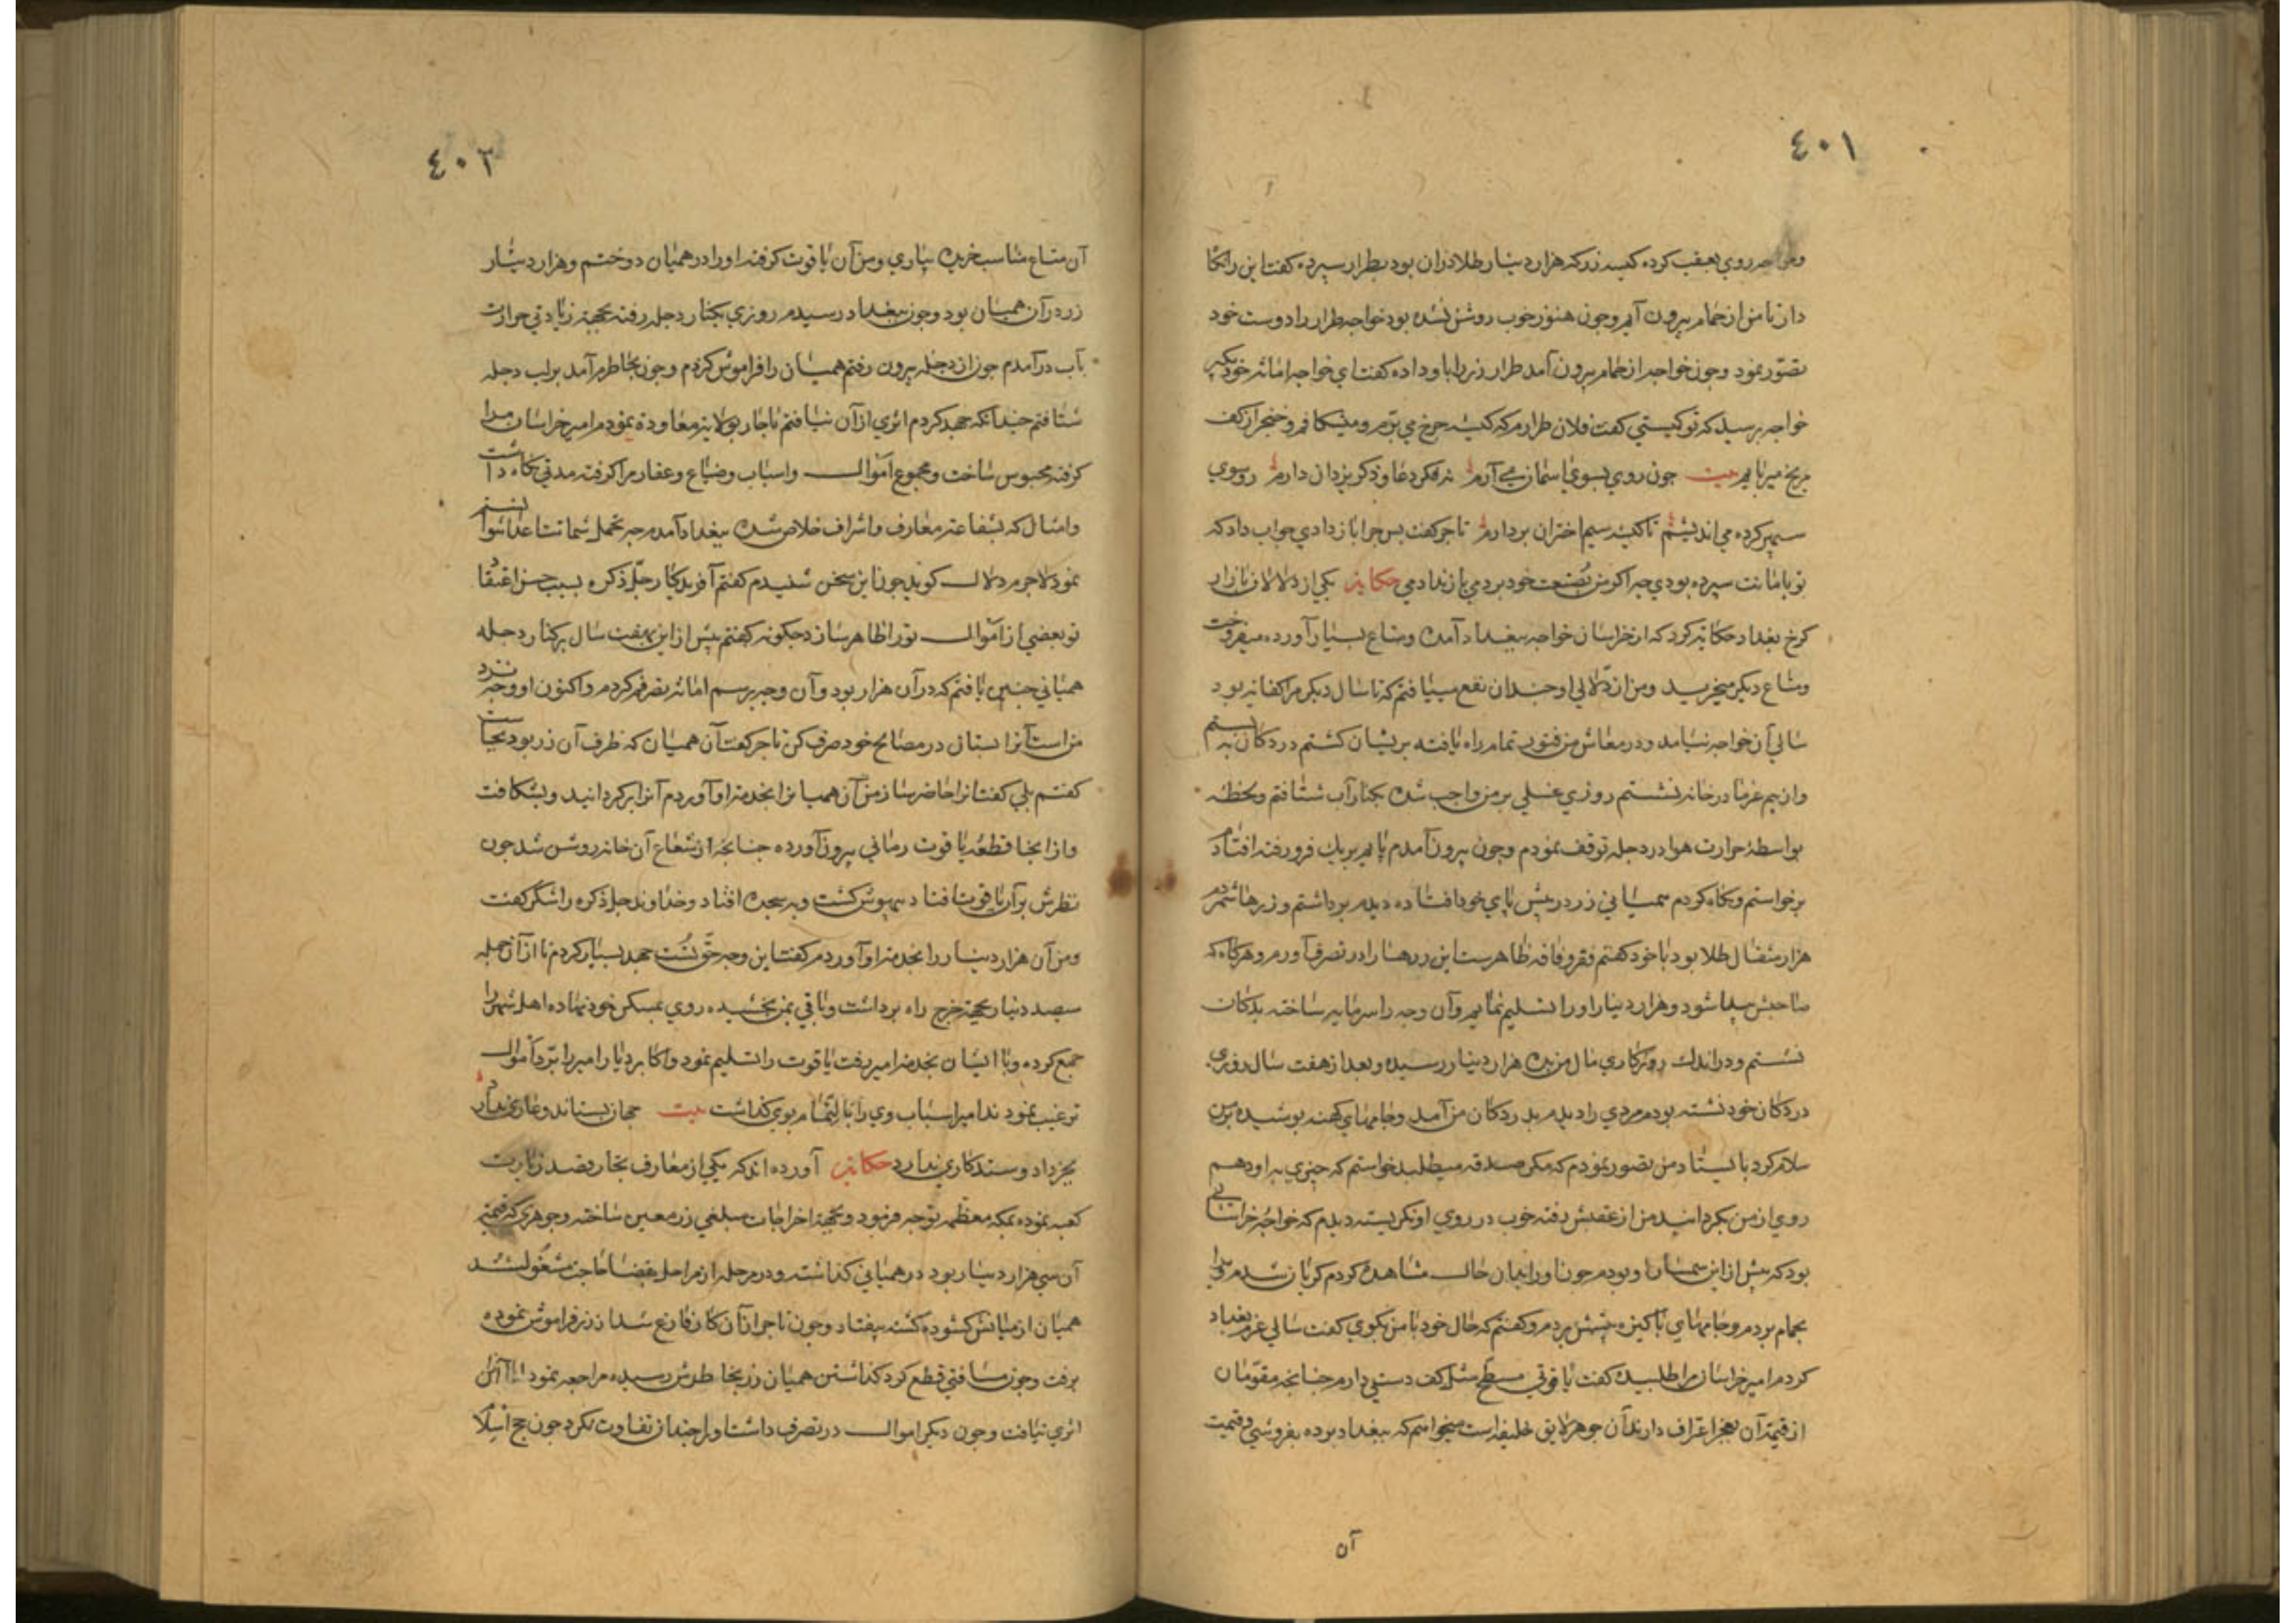 ٤٠١
روی بعقب کرده کیسه زر که هزار دینار طلا دران بود بطرار سپرده کفت این را نکاه
دار تا من از حمام بیرون آیم وچون هنوز خوب روشن نشده بود خواجه طرار را دوست خود
تصور نمود وچون خواجه از حمام بیرون آمد طرار زر را باو داده کفت ای خواجه امانت خود بکیر
خواجه پرسید که تو کیستی کفت فلان طرارم که کیسه چرخ می برم و میشکافم و خنجر از کف
مریخ میربایم بیت چون روی بسوی آسمان می آرم نه فکر دعا و ذکر یزدان دارم روسوی
سپهر کرده می اندیشم تا کیسه سیم اختران بردارم تاجر کفت پس چرا باز دادی جواب داد که
تو بامانت سپرده بودی چه اکر من بصنعت خود بردمی باز ندادمی حکایة یکی از دلالان بازار
کرخ بغداد حکایة کرد که از خراسان خواجه ببغداد آمدی ومتاع بسیار آورده میفروخت
ومتاع دیکر میخرید ومن از دلالی او چندان نفع مییافتم که تا سال دیکر مرا کفایة بود
سالی آن خواجه نیامد ودر معاش من فتور تمام راه یافته پریشان کشتم در دکان به بستم
واز بیم غرما در خانه نشستم روزی غسلی بر من واجب شده بکنار آب شتافتم ولحظهٔ
بواسطهٔ حرارت هوا در دجله توقف نمودم وچون بیرون آمدم پایم بریك فرو رفته افتادم
برخواستم ونکاه کردم همیانی زر در پیش پای خود افتاده دیدم برداشتم وزرها شمردم
هزار مثقال طلا بود با خود کفتم فقر وفاقه ظاهرست این زرها را در تصرف آورم وهرکاه که
صاحبش پیدا شود هزار دینار او را تسلیم نمایم وآن وجه را سرمایه ساخته بدکان
نشستم ودر اندك روزکاری مال من بده هزار دینار رسید وبعد از هفت سال روزی
در دکان خود نشسته بودم مردی را دیدم بدر دکان من آمد وجامهای کهنه پوشیده بر من
سلام کرد بایستاد من تصور نمودم که مکر صدقه میطلبد خواستم که چیزی به او دهم
روی از من بکردانید من از عقبش رفته خوب در روی او نکریسته دیدم که خواجهٔ خراسانی
بود که پیش از این سمسار او بودم چون او را بدان حال مشاهده کردم کریان شدم
بحمام بردم وجامهای پاکیزه پیشش بردم وکفتم که حال خود با من بکوی کفت سالی عزم بغداد
کردم امیر خراسان مرا طلبیده کفت یاقوتی مسطح مثل کف دستی دارم چنانچه مقومان
از قیمة آن بعجز اعتراف دارند آن جوهر لایق خلیفه است میخواهم که ببغداد برده بفروشی وقیمت
آن
٤٠٢
آن متاع مناسب خریده بیاری ومن آن یاقوت کرفته او را در همیان دوختم وهزار دینار
زر در آن همیان بود وچون ببغداد رسیدم روزی بکنار دجله رفته بجهة زیادتی حرارت
بآب درآمدم چون از دجله بیرون رفتم همیان را فراموش کردم وچون بخاطرم آمد بر لب دجله
شتافتم چندانکه جهد کردم اثری از آن نیافتم ناچار بولایة معاودة نمودم امیر خراسان مرا
کرفته محبوس ساخت ومجموع اموال واسباب وضیاع وعقار مرا کرفته مدتی نکاه داشت
وامسال که بشفاعة معارف واشراف خلاص شده ببغداد آمدم چه تحمل شماتت اعدا نتوانستم
نمود لاجرم دلال کوید چون این سخن شنیدم کفتم آفریدکار جل ذکره بسبب حسن اعتقاد
تو بعضی از اموال تو را ظاهر سازد چکونه کفتم پیش از این بهفت سال بر کنار دجله
همیانی چنین یافتم که در آن هزار بود وآن وجه برسم امانة تصرف کردم واکنون او وجه نزد
من است آنرا بستان در مصالح خود صرف کن تاجر کفت آن همیان که ظرف آن زر بود بجاست
کفتم بلی کفت آنرا حاضر ساز من آن همیانرا بخدمة او آوردم آنرا برکردانید وبشکافت
واز انجا قطعهٔ یاقوت رمانی بیرون آورده چنانچه از شعاع آن خانه روشن شد چون
نظرش بر آن یاقوت افتاد بیهوش کشت وبه سجده افتاد وخداوند جل ذکره را شکر کفت
ومن آن هزار دینار را بخدمة او آوردم کفت این وجه حق تست جهد بسیار کردم تا از آن جمله
سیصد دینار بجهة خرج راه برداشت وباقی بمن بخشیده روی بمسکن خود نهاده اهل شهر را
جمع کرده وبا ایشان بخدمة امیر رفت یاقوت را تسلیم نمود واکابر دیار امیر را برد اموال
ترغیب نمودند امیر اسباب وی را بالتمام بوی کذاشت بیت جهان بستاند وعاری ندارد
بجز داد وستد کاری ندارد حکایة آورده اند که یکی از معارف تجار بقصد زیارت
کعبه نموده بمکه معظمه توجه فرمود وبجهة اخراجات مبلغی زر معین ساخته وجوهری که قیمة
آن سی هزار دینار بود در همیانی کذاشته ودر مرحله از مراحل بقضا حاجت مشغول شد
همیان از میانش کشوده کشته بیفتاد وچون تاجر از آن کار فارغ شد از زر فراموش نموده
برفت وچون مسافتی قطع کرد کذاشتن همیان زر بخاطرش رسیده مراجعه نمود از آن
اثری نیافت وچون دیکر اموال در تصرف داشت او را چندان تفاوت نکرد چون حج اسلام